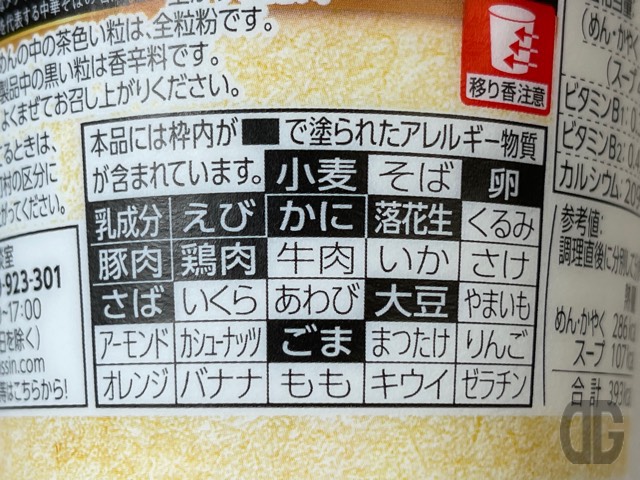 を代表する中華そばの名
めんの中の茶色い粒は、全粒粉です。
製品中の黒い粒は香辛料です。
よくまぜてお召し上がりください。
移り香注意
本品には枠内が■で塗られたアレルギー物質
が含まれています。 小麦 そば 卵
乳成分 えび かに 落花生 くるみ
豚肉 鶏肉 牛肉 いか さけ
さば いくら あわび 大豆 やまいも
アーモンド カシューナッツ ごま まつたけ りんご
オレンジ バナナ もも キウイ ゼラチン
るときは、
村の区分に
がってください。
室
-923-301
~17:00
日を除く)
ssin.com
等はこちらから!
(めん・かやく
(スープ
ビタミンB1:
ビタミンB2: 0.
カルシウム: 209
参考値:
調理直後に分別して
めん・かやく 286
スープ 107
合計 393
DG